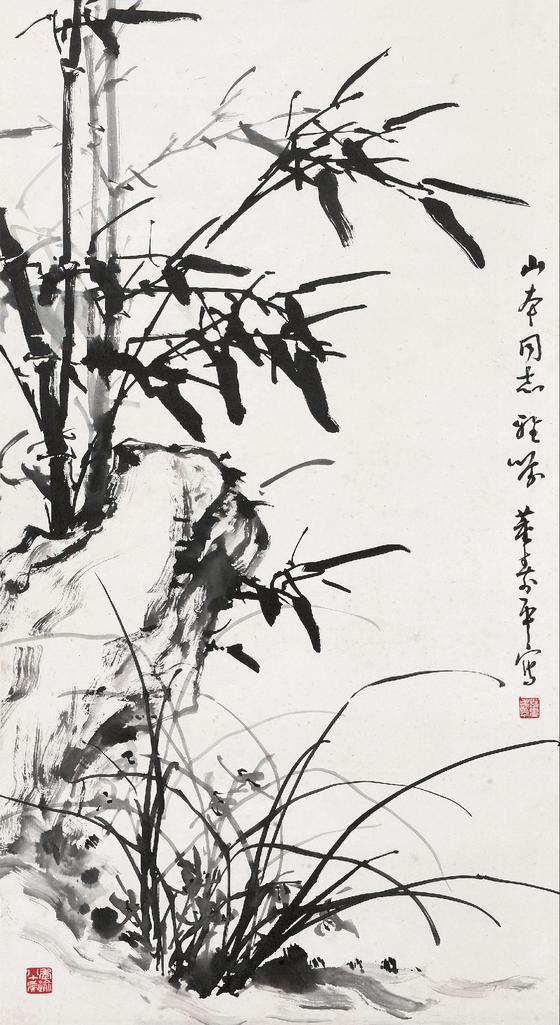 山本同志雅嘱董寿平写